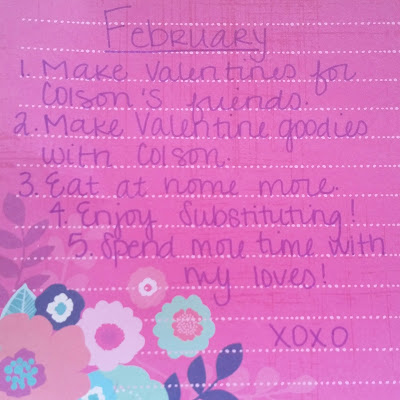 February
1. Make Valentines for
Colson's friends.
2. Make Valentine goodies
with Colson.
3. Eat at home more.
4. Enjoy Substituting!
5. Spend more time with
my loves!
XOXO